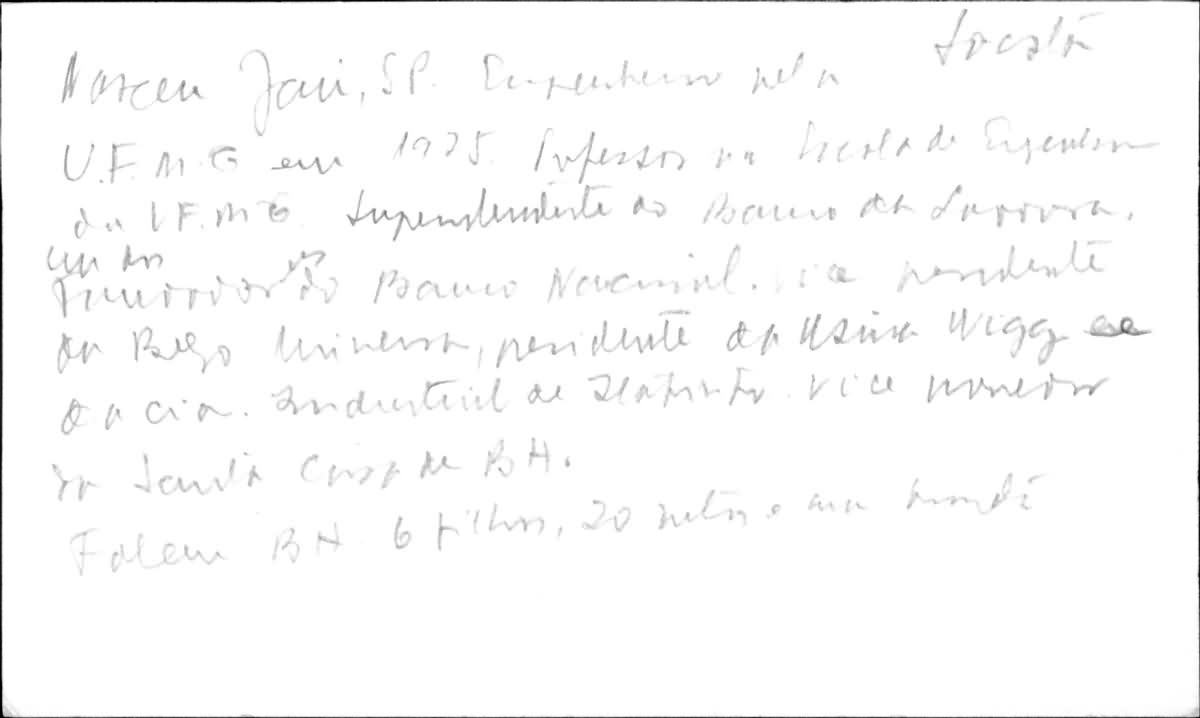 Nasceu Jau, SP. Engenheiro pela
U.F.M.G em 1925. Professor na Escola de Engenharia
da UFMG. Superintendente do Banco da Lavoura,
um dos
fundador es do Banco Nacional. Vice presidente
da Belgo Mineira, presidente da Usina Wigg e
da Cia. Industrial de Itabirito. Vice provedor
da Santa Casa de BH.
Faleceu BH 6 filhos, 20 netos e um